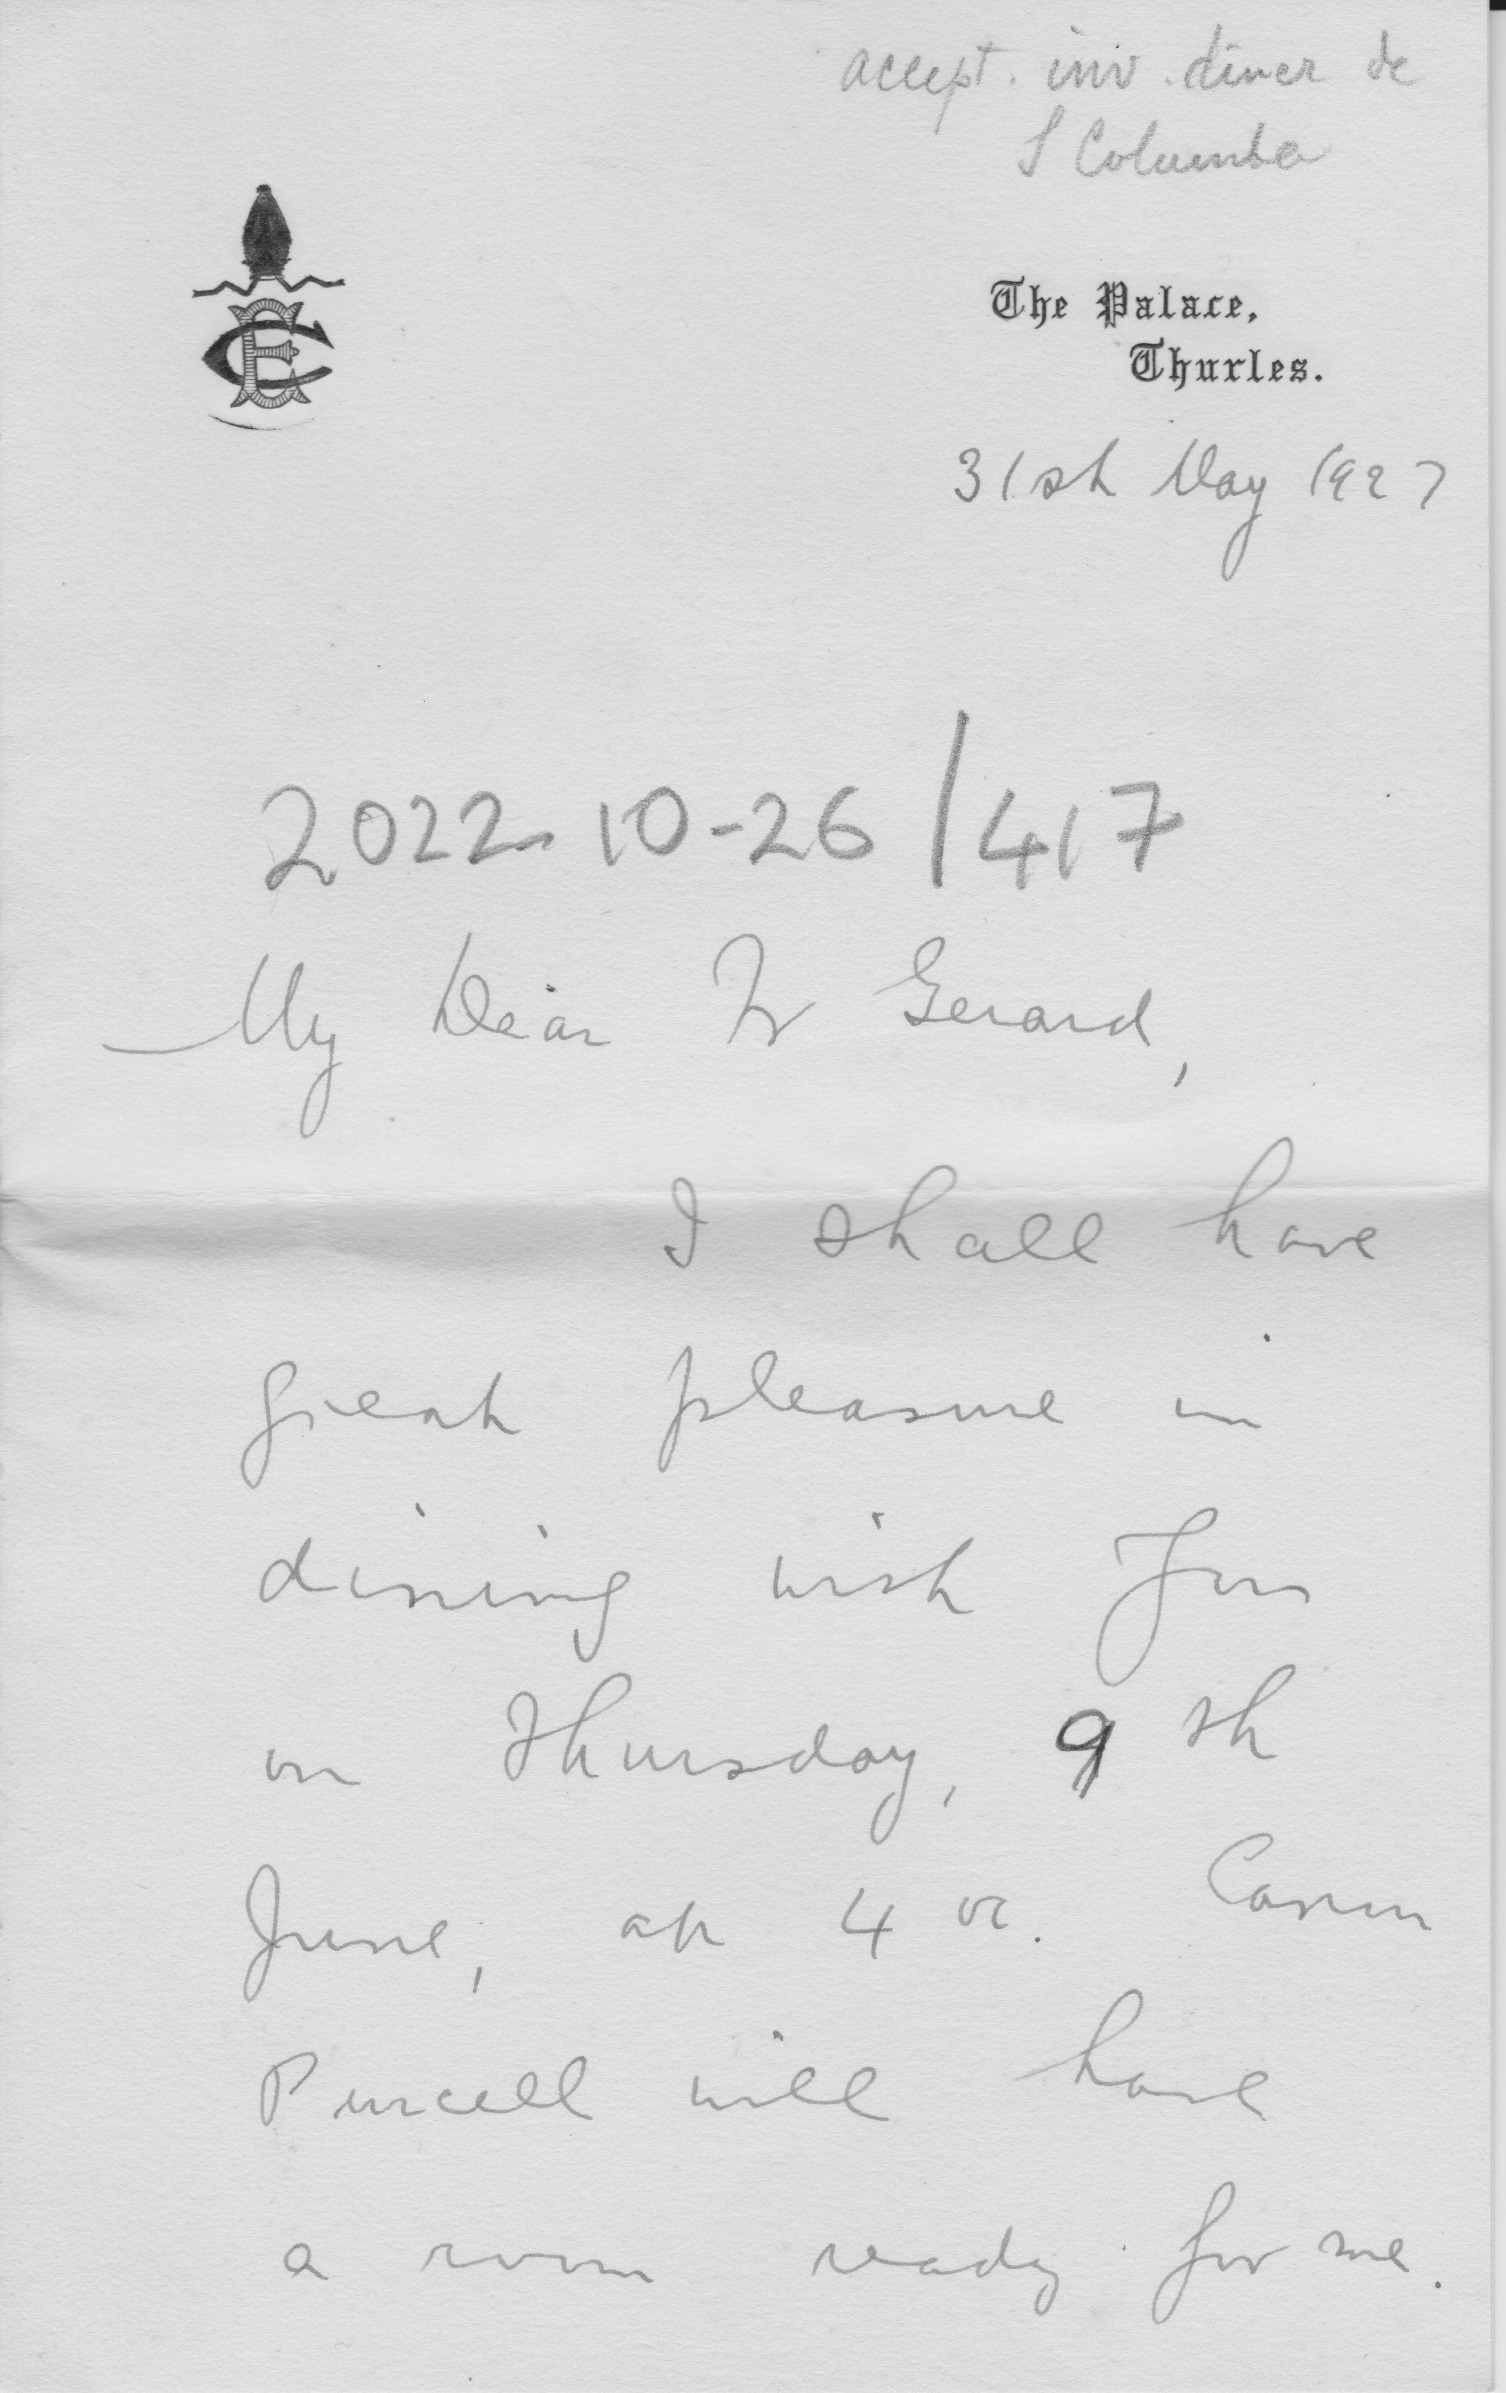 accept. inv. diner de
S Columba
The Palace,
Thurles.
31st May 1927
2022-10-26/417
My Dear Fr Gerard,
I shall have
great pleasure in
dining with you
on Thursday, 9th
June, at 4 oc. Canon
Purcell will have
a room ready for me.